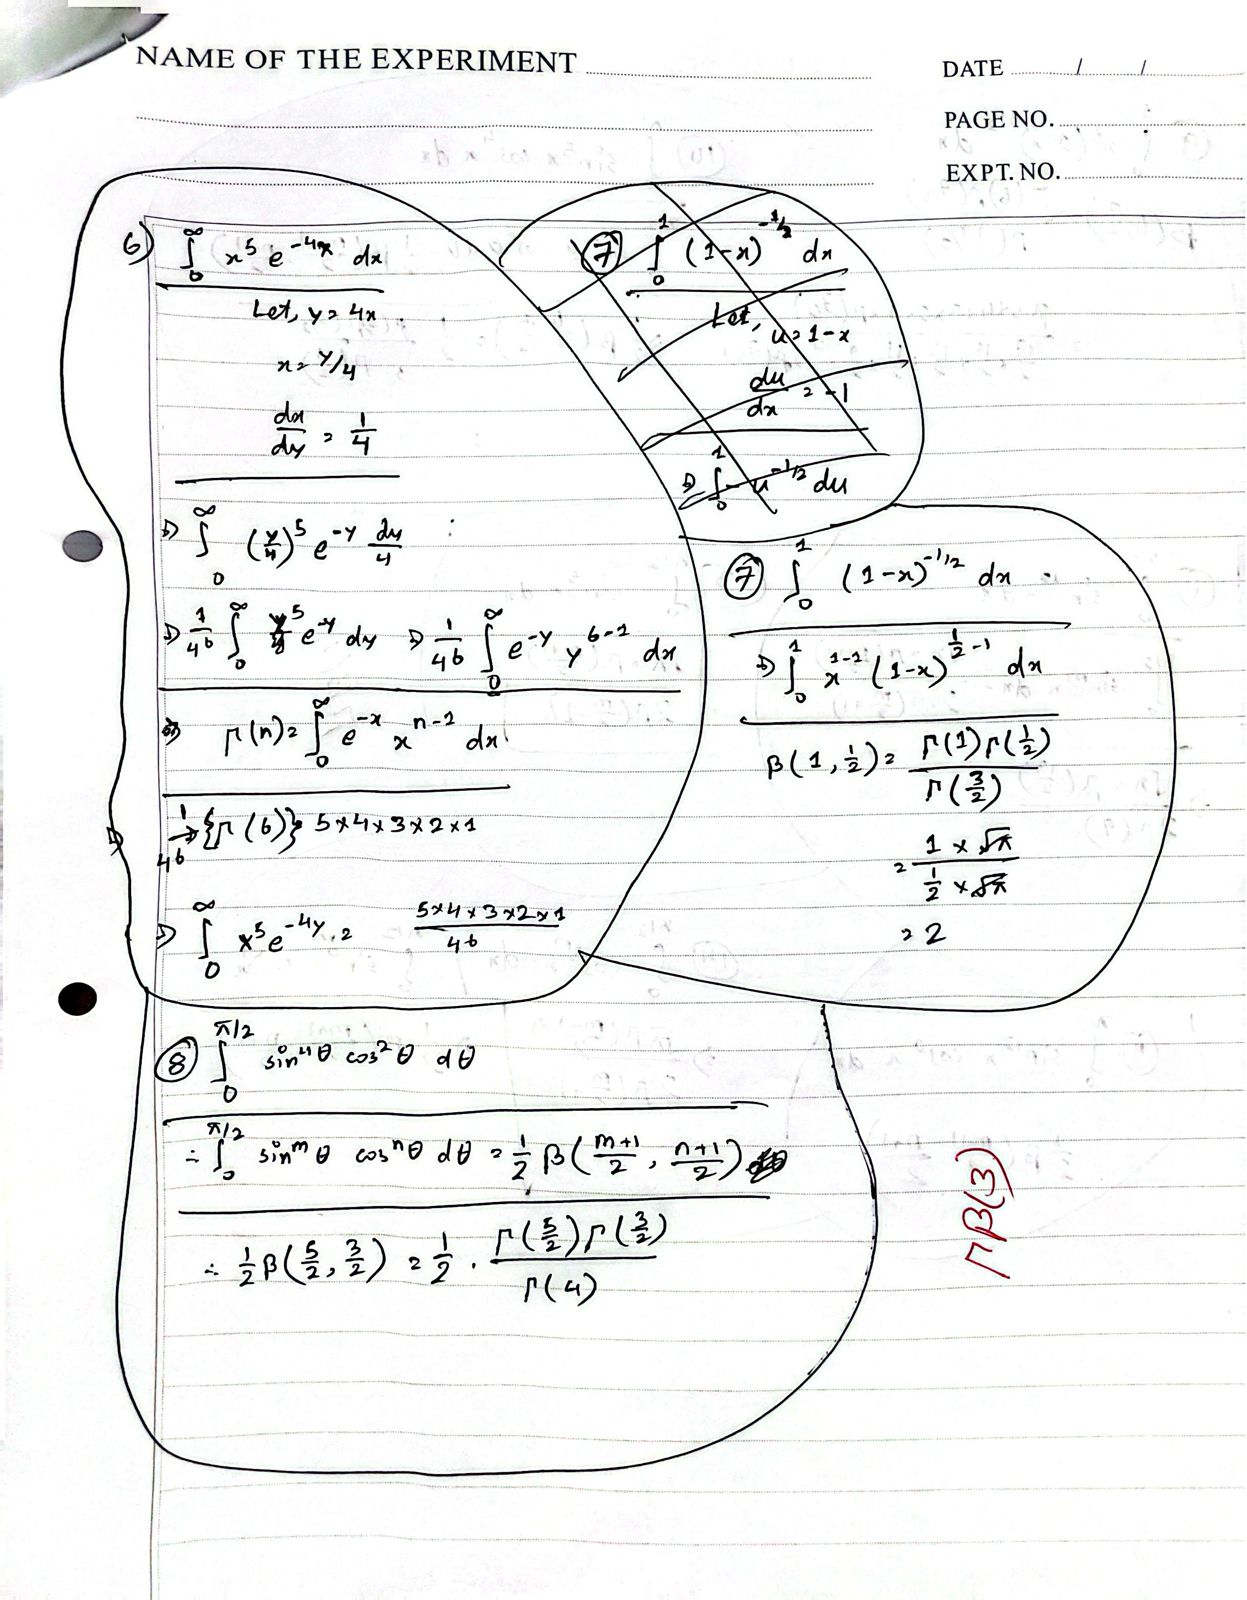 NAME OF THE EXPERIMENT
DATE / /
PAGE NO.
EXPT. NO.
6) ∫₀^∞ x⁵ e^(-4x) dx
Let, y = 4x
x = y/4
dx/dy = 1/4
⇒ ∫₀^∞ (y/4)⁵ e^(-y) dy/4
⇒ 1/4⁶ ∫₀^∞ y⁵ e^(-y) dy ⇒ 1/4⁶ ∫₀^∞ e^(-y) y^(6-1) dx
⇒ Γ(n) = ∫₀^∞ e^(-x) x^(n-1) dx
⇒ 1/4⁶ → {Γ(6)} 5×4×3×2×1
⇒ ∫₀^∞ x⁵ e^(-4y) . = 5×4×3×2×1 / 4⁶
⑦ ∫₀¹ (1-x)^(-1/2) dx
Let, u = 1-x
du/dx = -1
⇒ ∫₀¹ - u^(-1/2) du
⑦ ∫₀¹ (1-x)^(-1/2) dx
⇒ ∫₀¹ x^(1-1) (1-x)^(1/2 - 1) dx
β(1, 1/2) = Γ(1)Γ(1/2) / Γ(3/2)
= 1 × √π / 1/2 × √π
= 2
⑧ ∫₀^(π/2) sin⁴θ cos²θ dθ
∴ ∫₀^(π/2) sin^m θ cos^n θ dθ = 1/2 β(m+1/2, n+1/2)
∴ 1/2 β(5/2, 3/2) = 1/2 . Γ(5/2)Γ(3/2) / Γ(4)
Γβ(3)